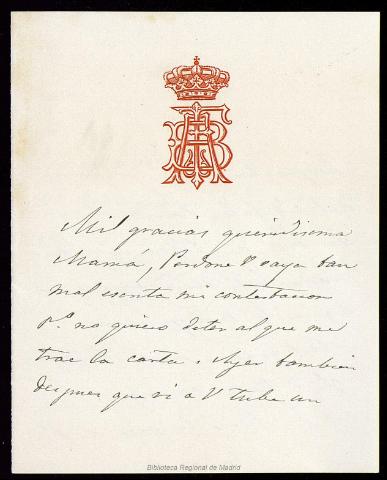 Mil gracias queridisima
Mamá, Perdone V vaya tan
mal escrita mi contestacion
p.º no quiero deter al que me
trae la carta. Ayer tambien
despues que vi a V tube un
Biblioteca Regional de Madrid